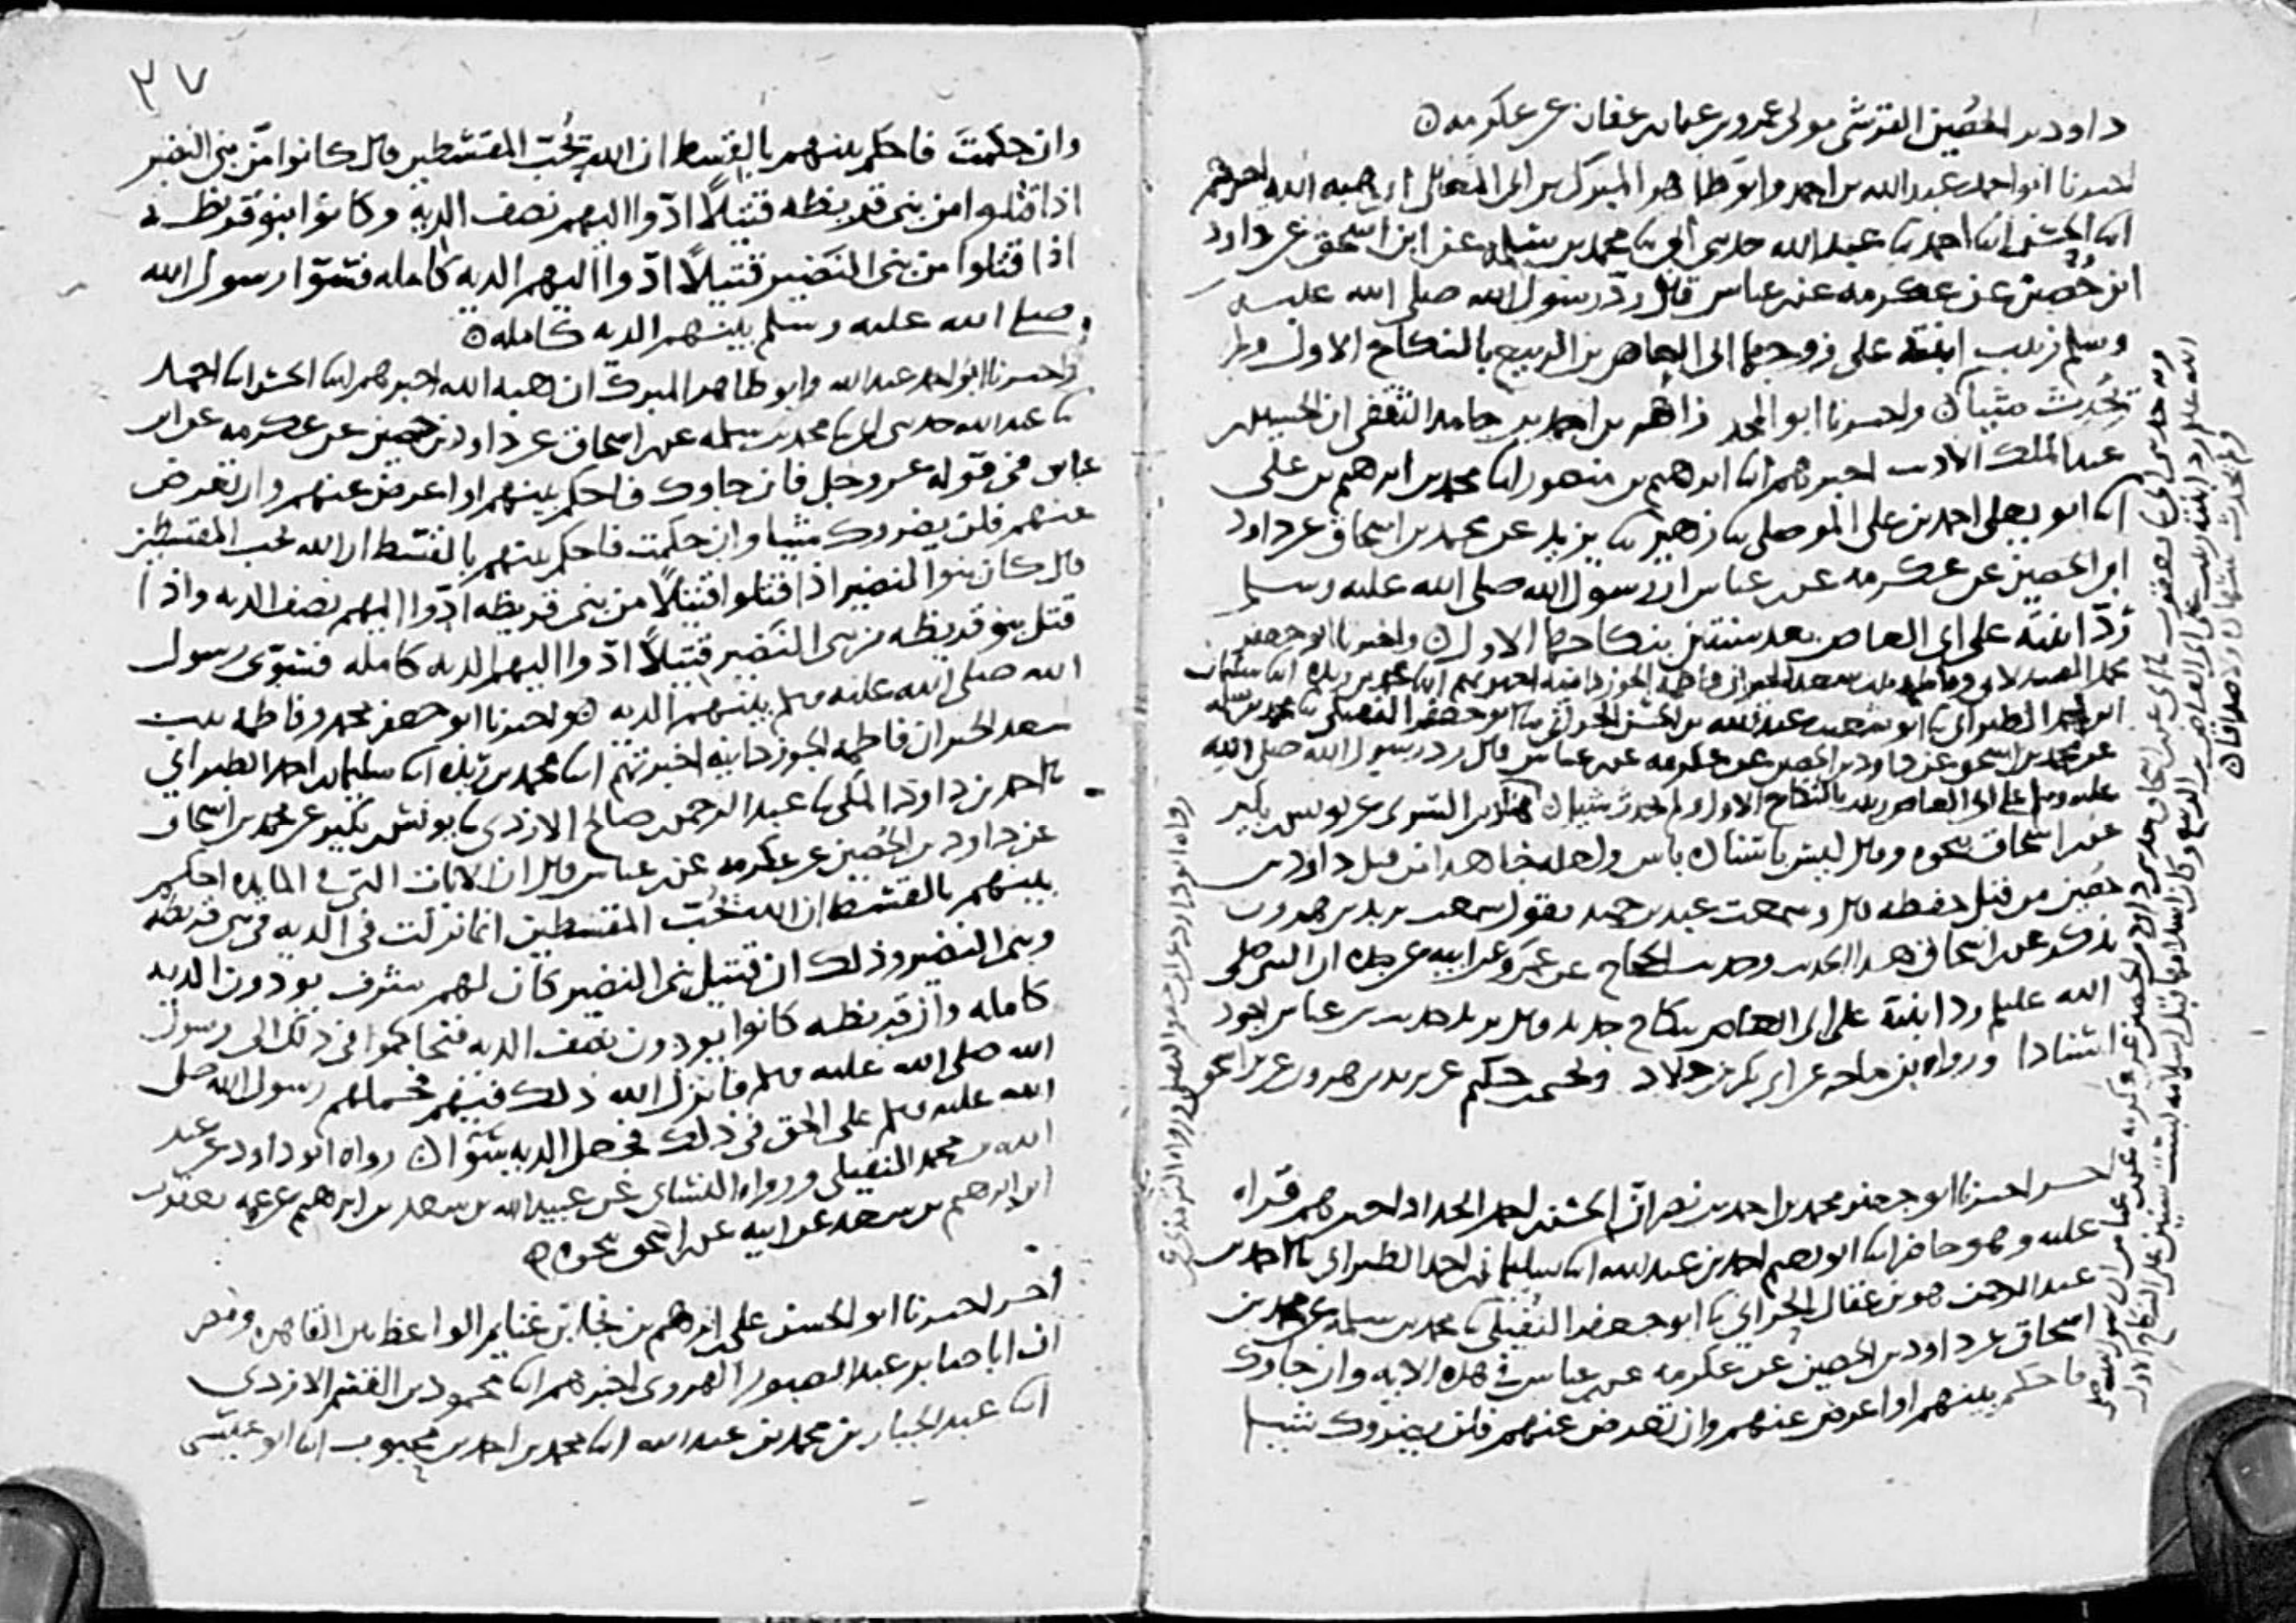 داود بن الحصين القرشي مولى عمرو بن عثمان بن عفان عن عكرمه
اخبرنا ابو احمد عبد الله بن احمد وابو طاهر المبرك بن ابي المعالي ان هبه الله اخبرهم
ابنا الحسن ابنا احمد ثنا عبد الله حدثني ابي ثنا محمد بن سلمه عن ابن اسحق عن داود
ابن حُصين عن عكرمه عن ابن عباس قال ردّ رسول الله صلى الله عليه
وسلم زينب ابنته على زوجها ابي العاص بن الربيع بالنكاح الاول ولم
يُحدث شيا واخبرنا ابو المجد زاهر بن احمد بن حامد الثقفي ان الحسين بن
عبد الملك الاديب اخبرهم ابنا ابرهيم بن منصور ابنا محمد بن ابرهيم بن علي
ابنا ابو يعلى احمد بن علي الموصلي ثنا زهير ثنا يزيد عن محمد بن اسحاق عن داود
ابن الحصين عن عكرمه عن ابن عباس ان رسول الله صلى الله عليه وسلم
ردّ ابنته على ابي العاص بعد سنتين بنكاحها الاول واخبرنا ابو جعفر
محمد الصيدلاني وفاطمه بنت سعد الخير ان فاطمه الجوزدانيه اخبرتهم ابنا محمد بن ريذه ابنا سليمان
ابن احمد الطبراني ثنا ابو شعيب عبد الله بن الحسن الحراني ثنا ابو جعفر النفيلي ثنا محمد بن سلمه
عن محمد بن اسحق عن داود بن الحصين عن عكرمه عن ابن عباس قال رد رسول الله صلى الله
عليه وسلم على ابي العاص زينب بالنكاح الاول ولم يحدث شيا السري عن يونس بن بكير
عن ابن اسحاق نحوه وقال ليس باسناده باس ولعله جا هذا من قبل داود بن
حُصين من قبل حفظه قال وسمعت عبد بن حميد يقول سمعت يزيد بن هرون
يذكر عن ابن اسحاق هذا الحديث وحديث الحجاج عن عمرو عن ابيه عن جده ان النبي صلى
الله عليه وسلم رد ابنته على ابي العاص بنكاح جديد وقال يزيد حديث ابن عباس اجود
اسنادا ورواه ابن ماجه عن ابي بكر بن خلاد ويحيى بن حكيم عن يزيد بن هرون عن ابن اسحق
اخر اخبرنا ابو جعفر محمد بن احمد بن نصر ان الحسن بن احمد الحداد اخبرهم قراه
عليه وهو حاضر ابنا ابو نعيم احمد بن عبد الله ابنا سليمان بن احمد الطبراني ثنا احمد بن
عبد الرحمن هو بن عقال الحراني ثنا ابو جعفر النُفيلي ثنا محمد بن سلمه عن محمد بن
اسحاق عن داود بن الحصين عن عكرمه عن ابن عباس في هذه الايه وان جاوك
فاحكم بينهم او اعرض عنهم وان تعرض عنهم فلن يضروك شيا
رواه ابو داود عن النفيلي ورواه الترمذي عن
٣٧
وان حكمتَ فاحكم بينهم بالقسط ان الله يُحبّ المقسطين قال كانوا من بني النضير
اذا قتلوا من بني قريظه قتيلاً ادّوا اليهم نصف الديه وكانوا بنو قريظه
اذا قتلوا من بني النضير قتيلاً ادّوا اليهم الديه كامله فسوّا رسول الله
صلى الله عليه وسلم بينهم الديه كامله
واخبرنا ابو احمد عبد الله وابو طاهر المبرك ان هبه الله اخبرهم ابنا الحسن ابنا احمد
ثنا عبد الله حدثني ابي ثنا محمد بن سلمه عن ابن اسحاق عن داود بن حصين عن عكرمه عن ابن
عباس في قوله عز وجل فان جاوك فاحكم بينهم او اعرض عنهم وان تعرض
عنهم فلن يضروك شيا وان حكمت فاحكم بينهم بالقسط ان الله يحب المقسطين
قال كان بنو النضير اذا قتلوا قتيلاً من بني قريظه ادّوا اليهم نصف الديه واذا
قتل بنو قريظه من بني النضير قتيلاً ادّوا اليهم الديه كامله فسوّى رسول
الله صلى الله عليه وسلم بينهم الديه واخبرنا ابو جعفر محمد وفاطمه بنت
سعد الخير ان فاطمه الجوزدانيه اخبرتهم ابنا محمد بن ريذه ابنا سليمان بن احمد الطبراني
ثنا احمد بن داود المكي ثنا عبد الرحمن بن صالح الازدي ثنا يونس بن بكير عن محمد بن اسحاق
عن داود بن الحُصين عن عكرمه عن ابن عباس قال ان الايات التي في المايده احكم
بينهم بالقسط ان الله يُحب المقسطين انما نزلت في الديه في بني قريظه
وبني النضير وذلك ان قتيل بني النضير كان لهم شرف يودون الديه
كامله وان قريظه كانوا يودون نصف الديه فتحاكموا في ذلك الى رسول
الله صلى الله عليه وسلم فانزل الله ذلك فيهم فحملهم رسول الله صلى
الله عليه وسلم على الحق في ذلك فجعل الديه سوا رواه ابو داود عن عبد
الله بن محمد النفيلي ورواه النساي عن عبيد الله بن سعد بن ابرهيم عن عمه يعقوب
ابن ابرهيم بن سعد عن ابيه عن ابن اسحق نحوه
اخر اخبرنا ابو الحسن علي بن ابرهيم بن نجا بن غنايم الواعظ القاهره ومصر
ان ابا صابر عبد الصبور الهروي اخبرهم ابنا محمود بن القسم الازدي
ابنا عبد الجبار بن محمد بن عبد الله ابنا محمد بن احمد بن محبوب ابنا ابو عيسى